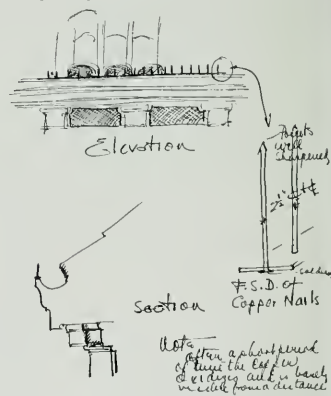 Elevation
Points
well
sharpened
2½"
solder
F.S.D. of
Copper Nails
Section
Note
after a short period
of time the copper
oxidizes and is barely
visible from a distance